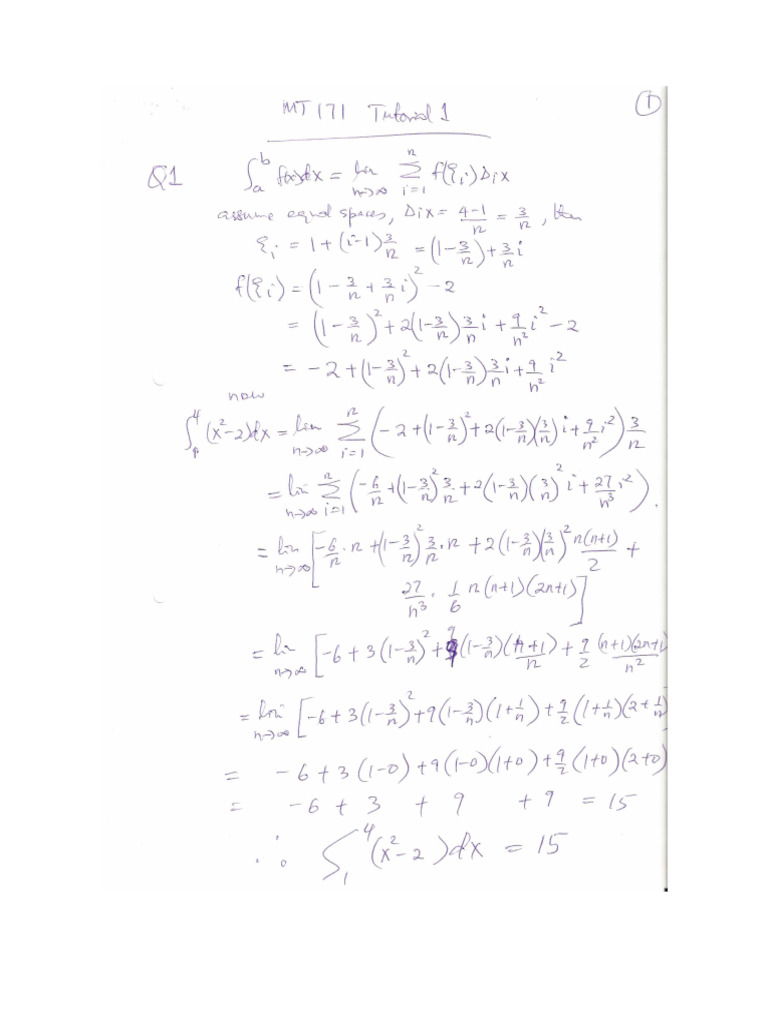 MT 171 Tutorial 1
①
Q1 ∫_a^b f(x)dx = lim_{n→∞} Σ_{i=1}^n f(ξ_i) Δ_i x
assume equal spaces, Δ_i x = (4-1)/n = 3/n , then
ξ_i = 1 + (i-1) 3/n = (1 - 3/n) + 3/n i
f(ξ_i) = (1 - 3/n + 3/n i)^2 - 2
= (1 - 3/n)^2 + 2(1 - 3/n) 3/n i + 9/n^2 i^2 - 2
= -2 + (1 - 3/n)^2 + 2(1 - 3/n) 3/n i + 9/n^2 i^2
now
∫_1^4 (x^2 - 2)dx = lim_{n→∞} Σ_{i=1}^n (-2 + (1 - 3/n)^2 + 2(1 - 3/n)(3/n) i + 9/n^2 i^2) 3/n
= lim_{n→∞} Σ_{i=1}^n (-6/n + (1 - 3/n)^2 3/n + 2(1 - 3/n)(3/n)^2 i + 27/n^3 i^2).
= lim_{n→∞} [-6/n · n + (1 - 3/n)^2 3/n · n + 2(1 - 3/n)(3/n)^2 n(n+1)/2 +
27/n^3 · 1/6 n(n+1)(2n+1)]
= lim_{n→∞} [-6 + 3(1 - 3/n)^2 + 9(1 - 3/n)(n+1)/n + 9/2 (n+1)(2n+1)/n^2
= lim_{n→∞} [-6 + 3(1 - 3/n)^2 + 9(1 - 3/n)(1 + 1/n) + 9/2 (1 + 1/n)(2 + 1/n)
= -6 + 3(1-0) + 9(1-0)(1+0) + 9/2 (1+0)(2+0)
= -6 + 3 + 9 + 9 = 15
∴ ∫_1^4 (x^2 - 2)dx = 15